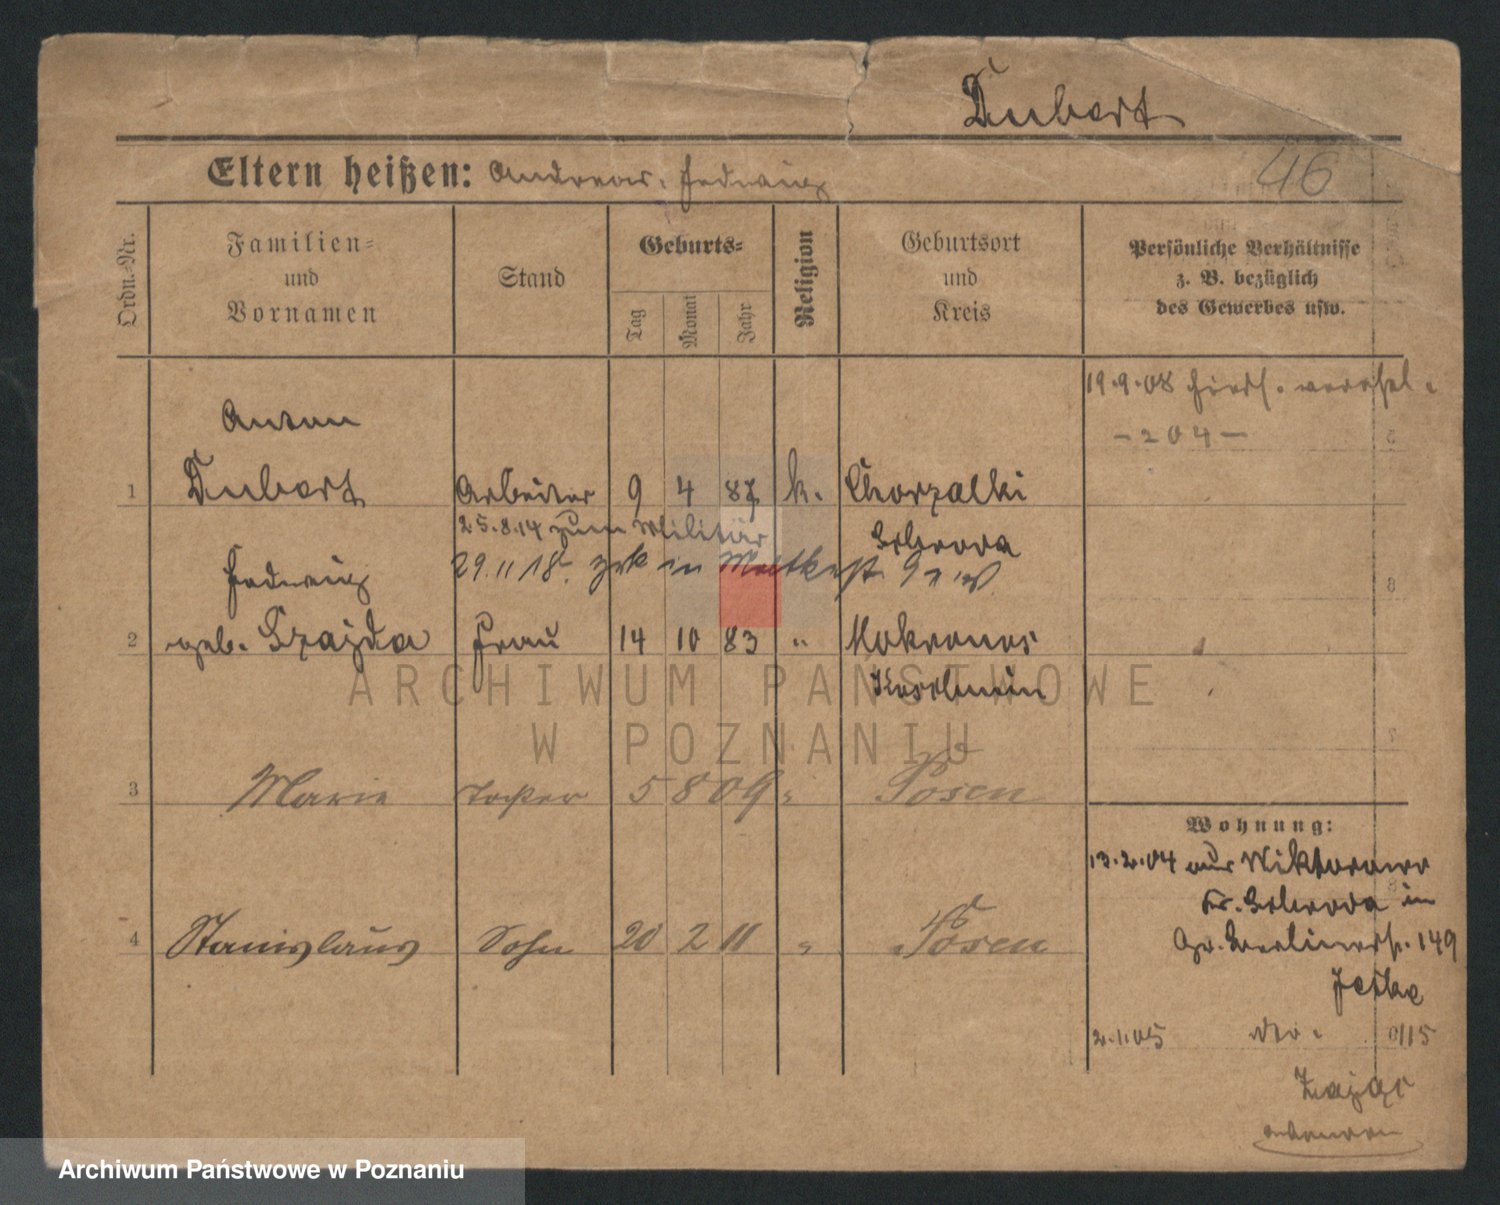 Dubert
46
Eltern heißen: Andreas. Hedwig
Ordn.-Nr.
Familien=
und
Vornamen
Stand
Geburts=
Tag
Monat
Jahr
Religion
Geburtsort
und
Kreis
Persönliche Verhältnisse
z. B. bezüglich
des Gewerbes usw.
19.9.08 hiers. verehel.
-204-
Anton
1 Dubert Arbeiter 9 4 87 k. Chorzalki
25.8.14 zum Militär
Schroda
29.11.18. zrk in
Hedwig
2 geb. Szajda Frau 14 10 83 " Mokronos
Koschmin
3 Marie Tochter 5 8 09 " Posen
Wohnung:
13.2.04 aus Wiktorowo
Kr. Schroda in
4 Stanislaus Sohn 20 2 11 " Posen
Gr. Berlinerstr. 149
Jeske
2.1.05 dto. 115
ARCHIWUM PAŃSTWOWE
W POZNANIU
Archiwum Państwowe w Poznaniu